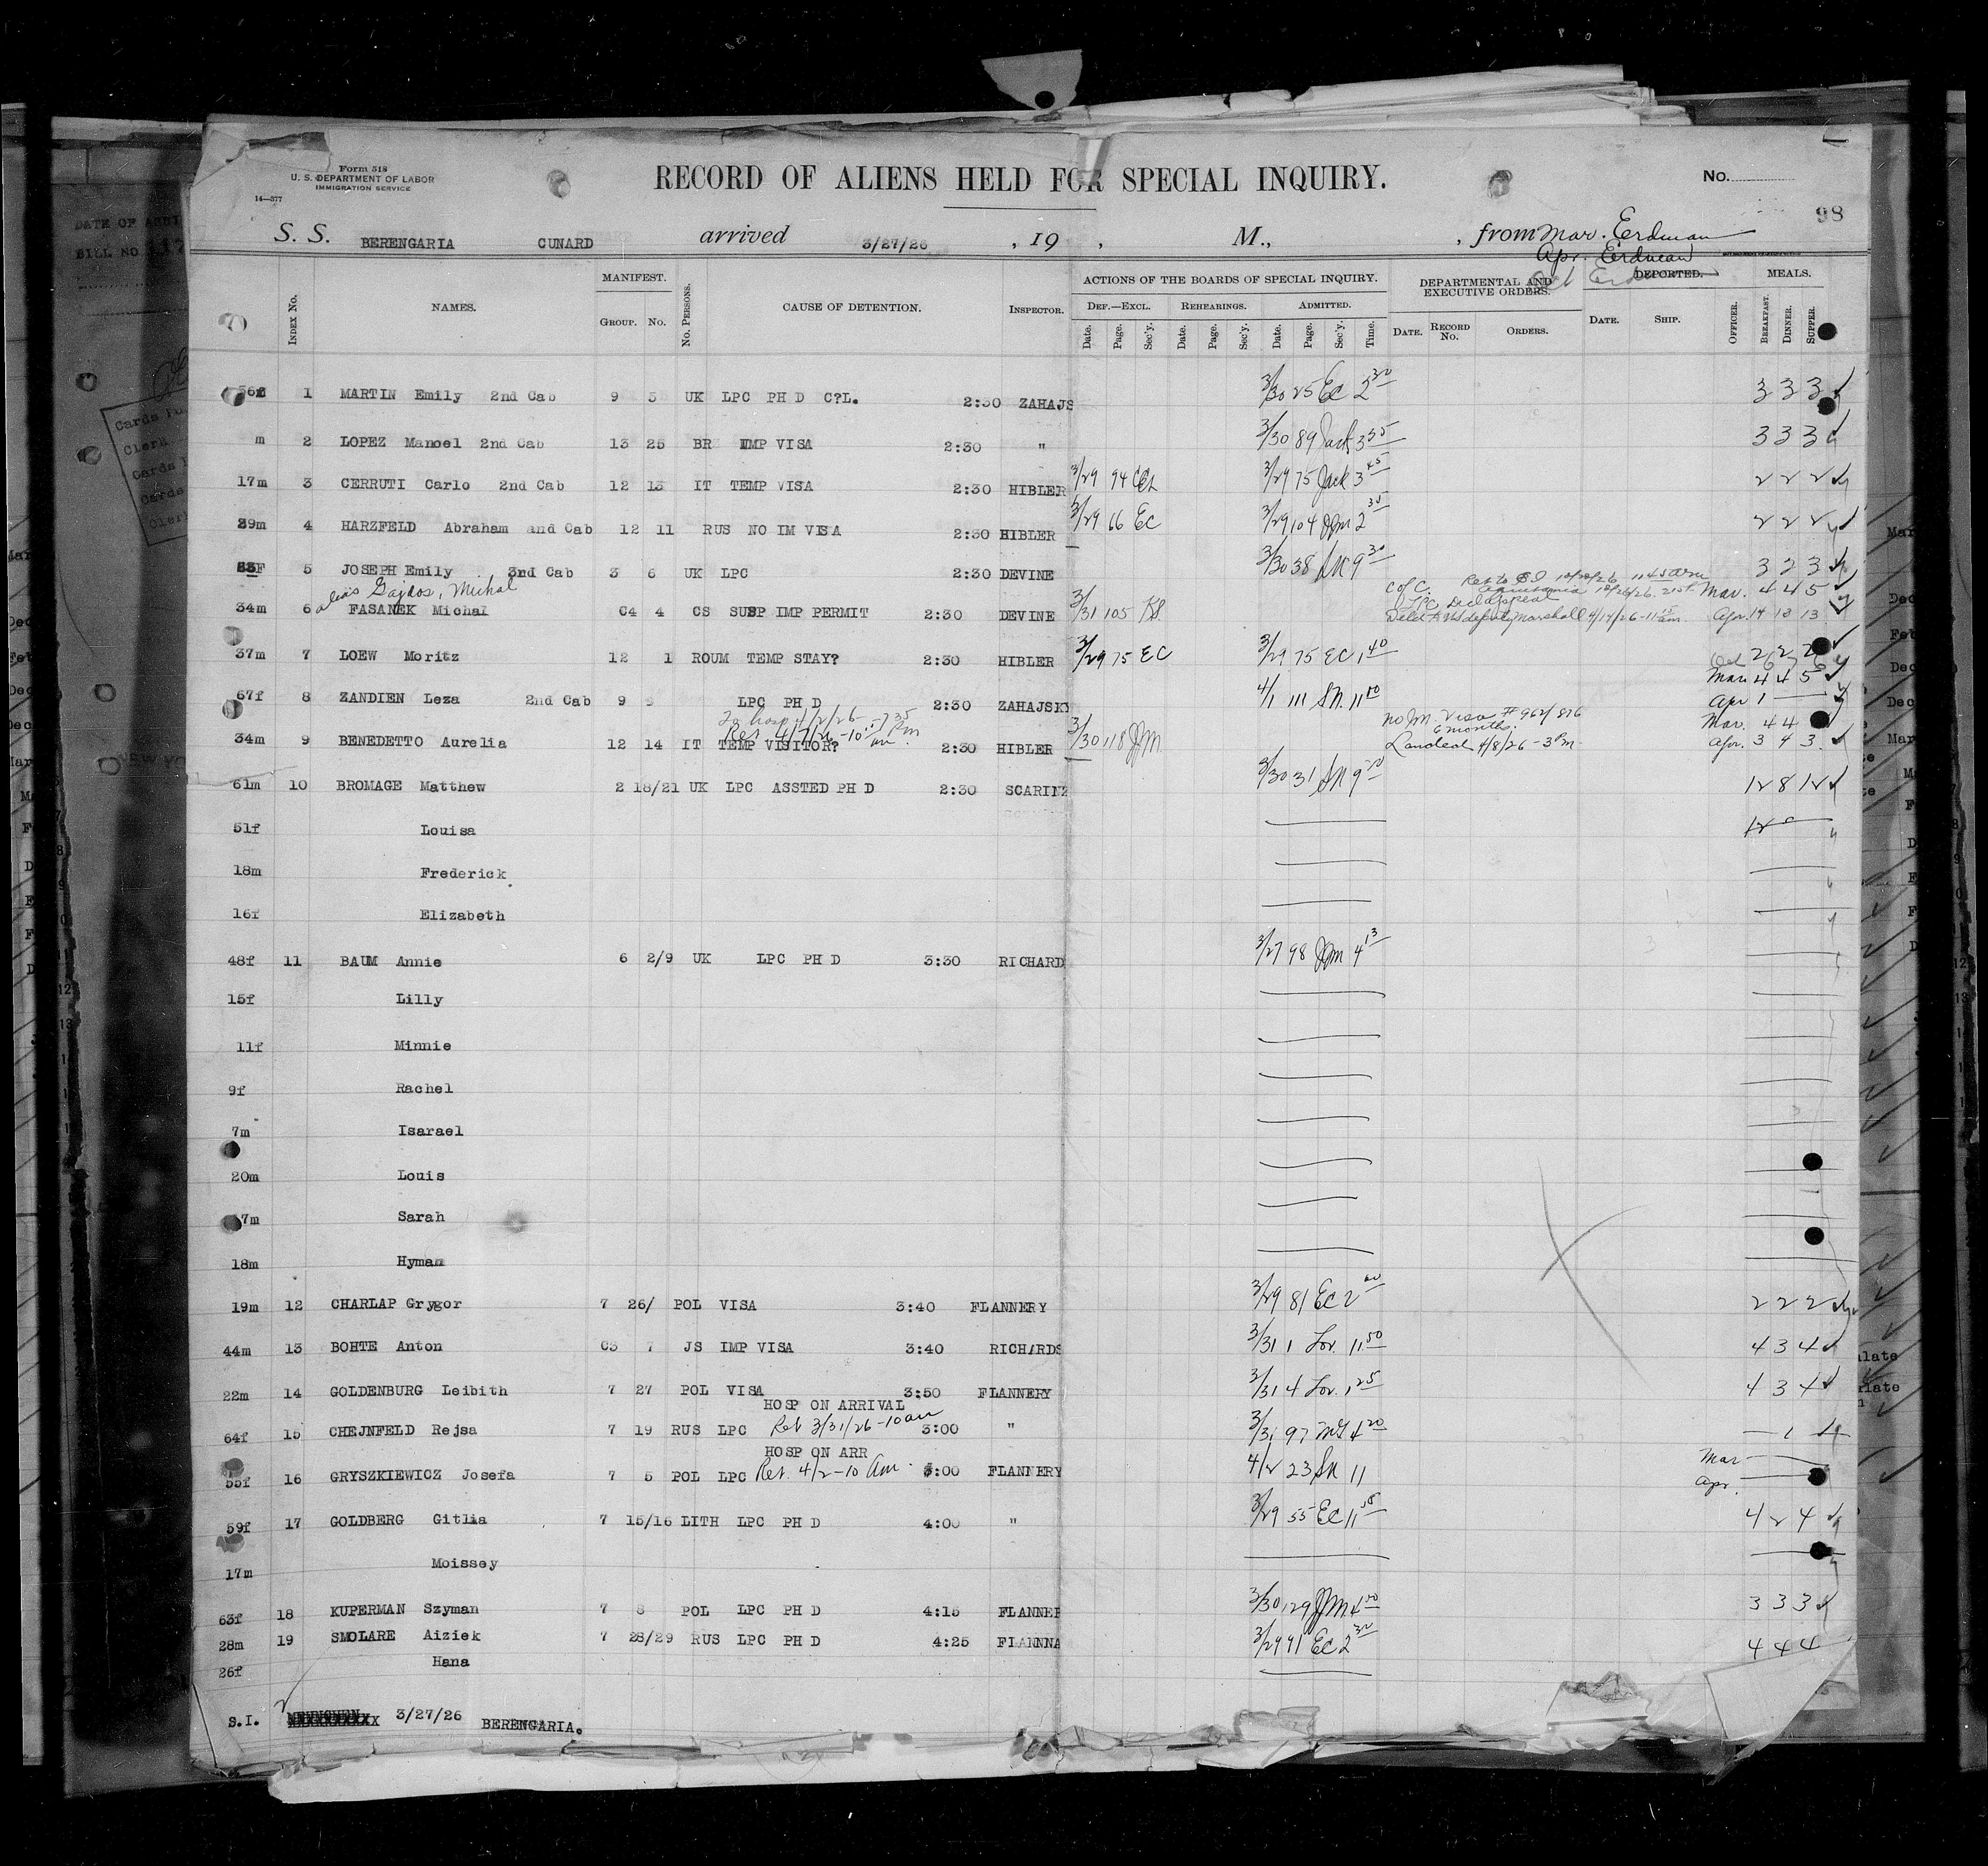 Form 518
U. S. DEPARTMENT OF LABOR
IMMIGRATION SERVICE
14—577
RECORD OF ALIENS HELD FOR SPECIAL INQUIRY.
No.
98
S. S. BERENGARIA CUNARD arrived 3/27/26 , 19 , M., , from Mar. Erdman
Apr. Erdman
Oct Erdman
INDEX No. NAMES. MANIFEST. GROUP. No. No. PERSONS. CAUSE OF DETENTION. INSPECTOR. ACTIONS OF THE BOARDS OF SPECIAL INQUIRY. DEPARTMENTAL AND EXECUTIVE ORDERS. DEPORTED. MEALS.
DEF.—EXCL. REHEARINGS. ADMITTED.
Date. Page. Sec'y. Date. Page. Sec'y. Date. Page. Sec'y. Time. DATE. RECORD No. ORDERS. DATE. SHIP. OFFICER. BREAKFAST. DINNER. SUPPER.
56f 1 MARTIN Emily 2nd Cab 9 5 UK LPC PH D C?L. 2:30 ZAHAJS 3/30 25 EC 2 30 3 3 3
m 2 LOPEZ Manoel 2nd Cab 13 25 BR IMP VISA 2:30 " 3/30 89 Jack 3 35 3 3 3
17m 3 CERRUTI Carlo 2nd Cab 12 13 IT TEMP VISA 2:30 HIBLER 3/29 94 3/29 75 Jack 3 45 2 2 2
39m 4 HARZFELD Abraham and Cab 12 11 RUS NO IM VISA 2:30 HIBLER 3/29 66 EC 3/29 104 JJM 2 35 2 2 2
5 JOSEPH Emily 3rd Cab 3 6 UK LPC 2:30 DEVINE 3/30 38 SN 9 30 3 2 3
alias Gajdos, Michal
34m 6 FASANEK Michal C4 4 CS SUSP IMP PERMIT 2:30 DEVINE 3/31 105 Mar. 4 4 5
LPC Decl Appeal
Deld to US deputy Marshall 4/14/26 - 11 15 am. Apr. 14 12 13
37m 7 LOEW Moritz 12 1 ROUM TEMP STAY? 2:30 HIBLER 3/29 75 EC 3/29 75 EC 1 40 2 2 2
Oct 6
67f 8 ZANDIEN Leza 2nd Cab 9 LPC PH D 2:30 ZAHAJSKY 4/1 111 SN. 11 00 Mar 4 4 5
Apr 1
To hosp 4/2/26 - 7 35 Pm
Ret 4/7/26 - 10 am.
34m 9 BENEDETTO Aurelia 12 14 IT TEMP VISITOR? 2:30 HIBLER 3/30 118 JJM no Im. Visa # 962/816 Mar. 4 4
6 months.
Landed 4/8/26 - 3 Pm. Apr. 3 4 3
61m 10 BROMAGE Matthew 2 18/21 UK LPC ASSTED PH D 2:30 SCARINZ 3/30 31 SN 9 12 8 12
51f Louisa
18m Frederick
16f Elizabeth
48f 11 BAUM Annie 6 2/9 UK LPC PH D 3:30 RICHARD 3/27 98 JJM 4 13
15f Lilly
11f Minnie
9f Rachel
7m Isarael
20m Louis
7m Sarah
18m Hyman
19m 12 CHARLAP Grygor 7 26/ POL VISA 3:40 FLANNERY 3/29 81 EC 2 2 2 2
44m 13 BOHTE Anton C3 7 JS IMP VISA 3:40 RICHARDS 3/31 1 Lov. 11 50 4 3 4
22m 14 GOLDENBURG Leibith 7 27 POL VISA 3:50 FLANNERY 3/31 4 Lov. 1 25 4 3 4
HOSP ON ARRIVAL
64f 15 CHEJNFELD Rejsa 7 19 RUS LPC Ret 3/31/26 - 10 am 3:00 " 3/31 97 4 20 1
HOSP ON ARR
55f 16 GRYSZKIEWICZ Josefa 7 5 POL LPC Ret. 4/2 - 10 am. 3:00 FLANNERY 4/2 23 SN 11 Mar
Apr.
59f 17 GOLDBERG Gitlia 7 15/16 LITH LPC PH D 4:00 " 3/29 55 EC 11 4 2 4
17m Moissey
63f 18 KUPERMAN Szyman 7 8 POL LPC PH D 4:15 FLANNER 3/30 129 JJM 4 3 3 3
28m 19 SMOLARE Aiziek 7 28/29 RUS LPC PH D 4:25 FLANNNA 3/29 91 EC 2 30 4 4 4
26f Hana
S.I. 3/27/26 BERENGARIA.